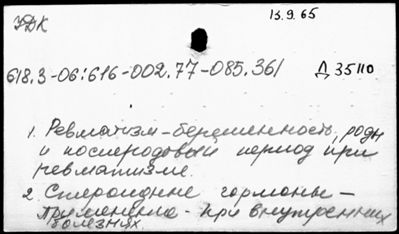 УДК
13.9.65
618.3-06:616-002.77-085.361
Д 35110
1. Ревматизм-беременность, роды
и послеродовый период при
ревматизме.
2. Стероидные гормоны -
применение - при внутренних
болезнях.